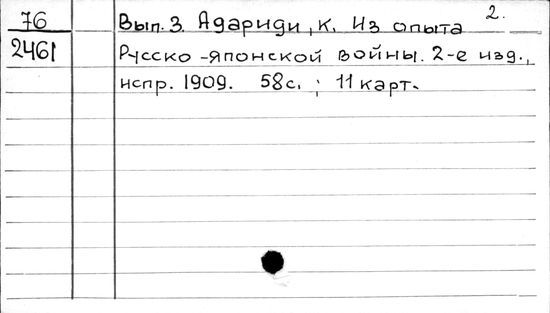 2.
76 Вып. 3. Адариди, К. Из опыта
2461 Русско-японской войны. 2-е изд.,
испр. 1909. 58с. ; 11 карт.